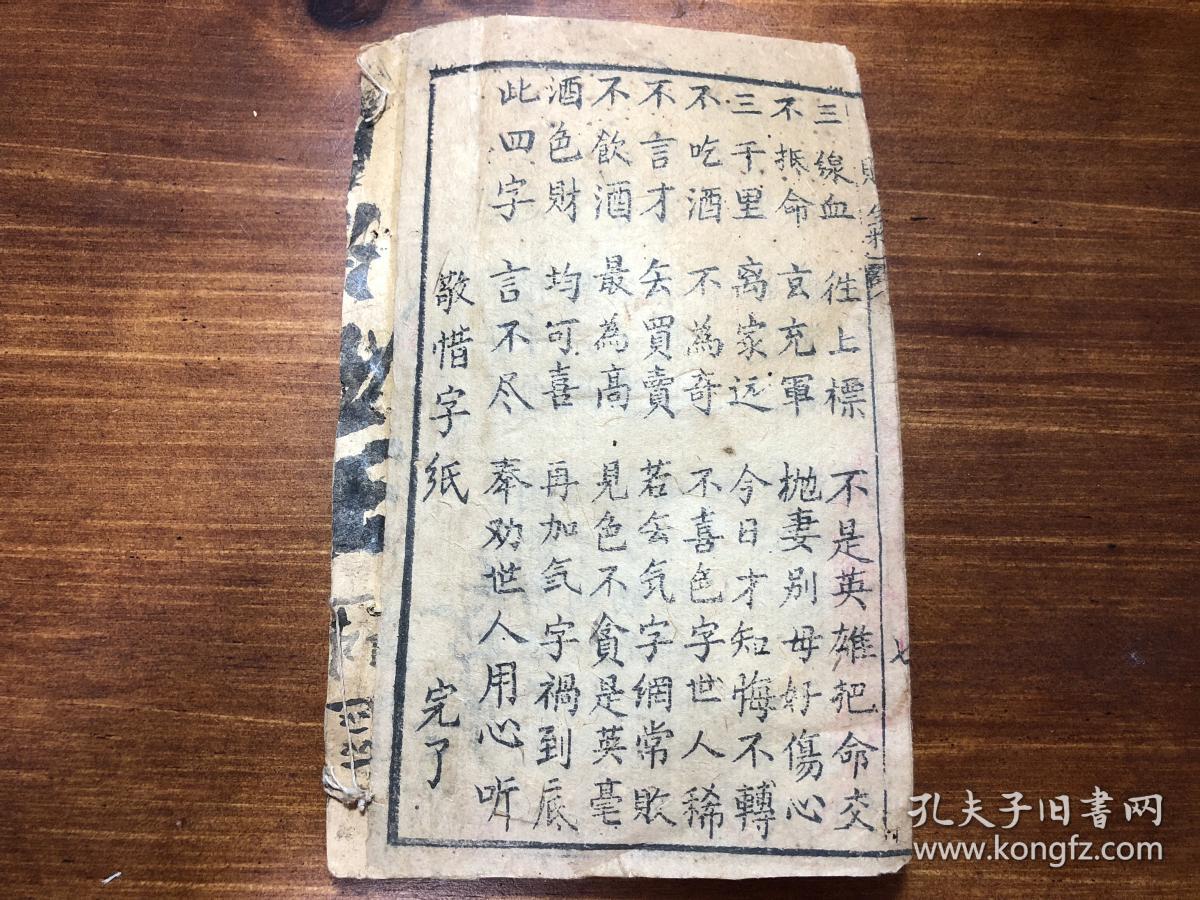 三線血 徃上標 不是英雄把命交
不抵命 玄充軍 抛妻别毋好傷心
三千里 离家远 今日才知悔不轉
不吃酒 不為奇 不喜色字世人稀
不言才 厺買賣 若厺気字網常敗
不飲酒 最為高 見色不貪是英毫
酒色財 均可喜 再加気字禍到底
此四字 言不尽 奉劝世人用心听
敬惜字紙 完了
孔夫子旧書网
www.kongfz.com